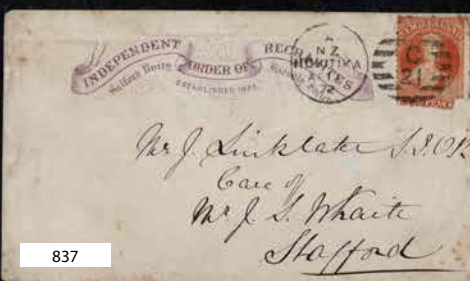 INDEPENDENT ORDER OF RECHA
Salford Unity
ESTABLISHED
NZ
HOKITIKA
72
PENCE
Mr J. Linklater S.J.
Care of
Mr J. G. Whaite
Stafford
837